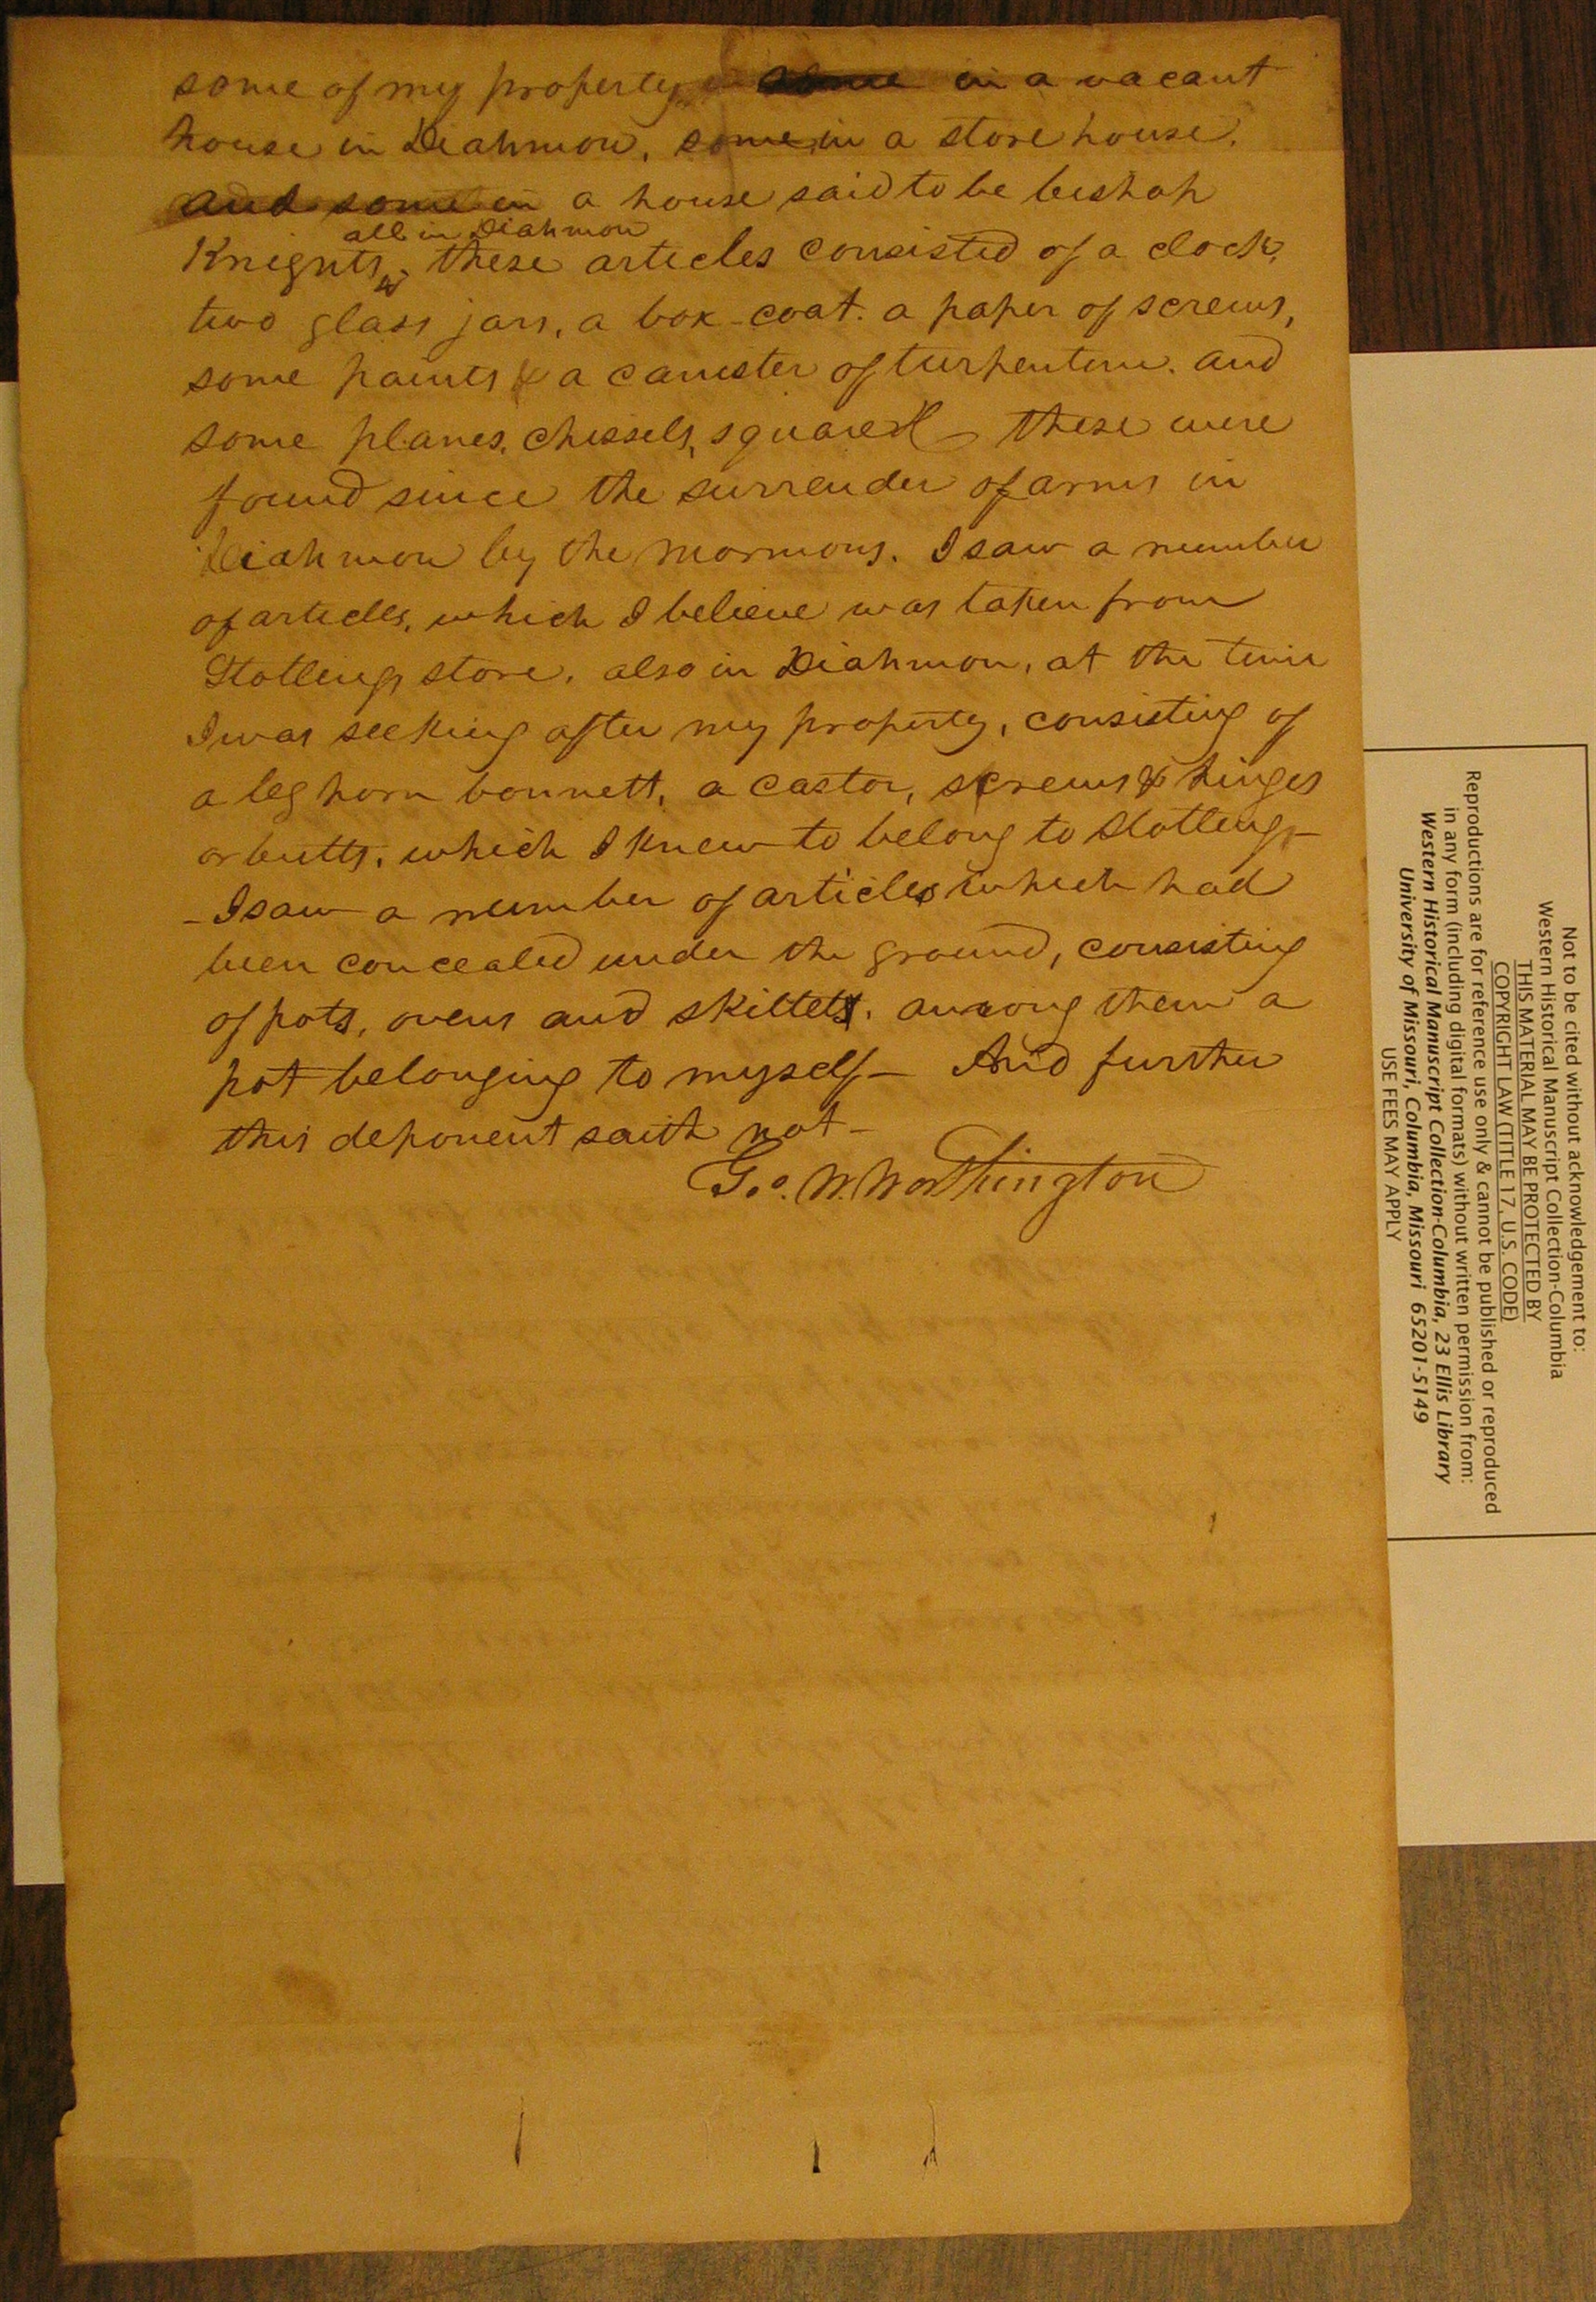 some of my property some in a vacant
house in Diahmon, some in a store house,
and some in a house said to be bishop
all in Diahmon
Knights, these articles consisted of a clock,
two glass jars, a box-coat. a paper of screws,
some paints & a canister of turpentine. and
some planes, chissels, squares &c these were
found since the surrender of arms in
Diahmon by the mormons. I saw a number
of articles, which I believe was taken from
Stollings store, also in Diahmon, at the time
I was seeking after my property, consisting of
a leghorn bonnett, a castor, screws & hinges
or butts, which I knew to belong to Stollings-
- I saw a number of articles which had
been concealed under the ground, consisting
of pots, ovens and skillets. among them a
pot belonging to myself - And further
this deponent saith not -
Geo. W. Worthington
Not to be cited without acknowledgement to:
Western Historical Manuscript Collection-Columbia
THIS MATERIAL MAY BE PROTECTED BY
COPYRIGHT LAW (TITLE 17, U.S. CODE)
Reproductions are for reference use only & cannot be published or reproduced
in any form (including digital formats) without written permission from:
Western Historical Manuscript Collection-Columbia, 23 Ellis Library
University of Missouri, Columbia, Missouri 65201-5149
USE FEES MAY APPLY